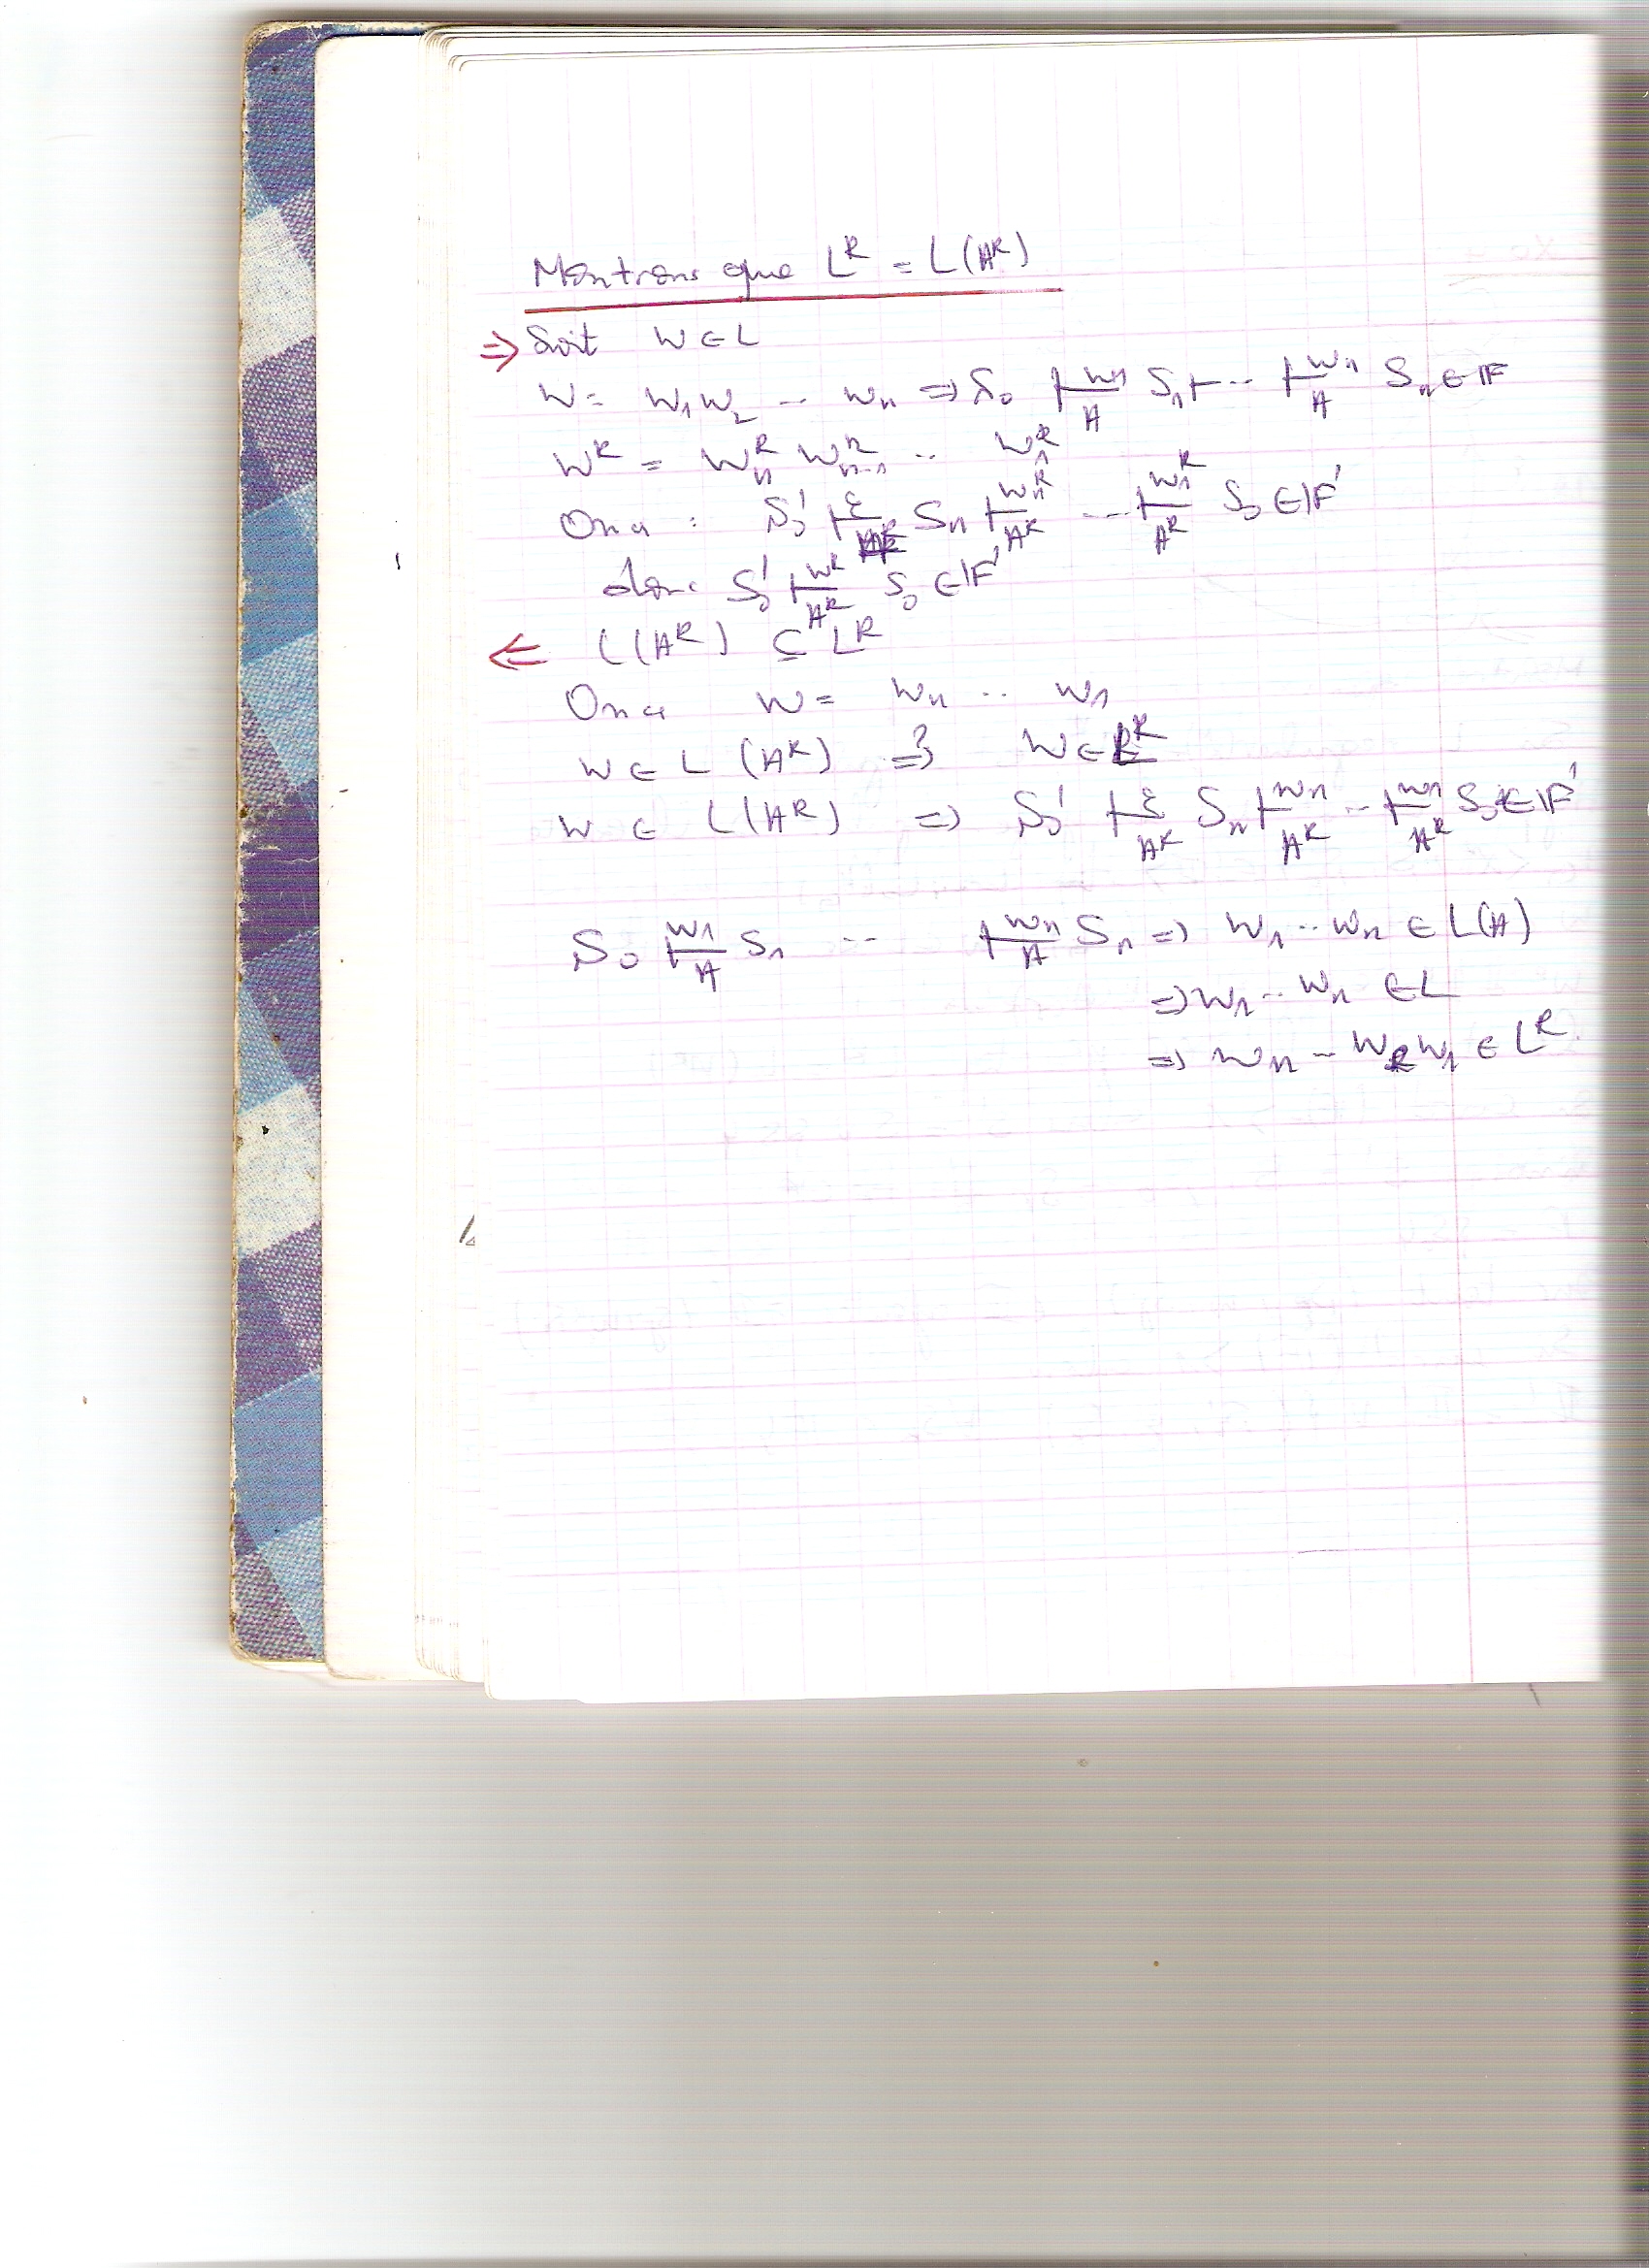 Montrons que L^R = L(A^R)
⇒ Soit W ∈ L
W = W₁W₂ -- Wₙ ⇒ S₀ |-^{W₁}_A S₁ |- -- |-^{Wₙ}_A Sₙ ∈ F
W^R = Wₙ^R Wₙ₋₁^R .. W₁^R
On a : S₀' |-^ε_{A^R} Sₙ |-^{Wₙ^R}_{A^R} --- |-^{W₁^R}_{A^R} S₀ ∈ F'
donc S₀' |-^{W^R}_{A^R} S₀ ∈ F'
⇐ L(A^R) ⊆ L^R
On a W = Wₙ .. W₁
W ∈ L(A^R) ⇒? W ∈ L^R
W ∈ L(A^R) ⇒ S₀' |-^ε_{A^R} Sₙ |-^{Wₙ}_{A^R} -- |-^{W₁}_{A^R} S₀ ∈ F'
S₀ |-^{W₁}_A S₁ -- |-^{Wₙ}_A Sₙ ⇒ W₁ .. Wₙ ∈ L(A)
⇒ W₁ -- Wₙ ∈ L
⇒ Wₙ -- W₂W₁ ∈ L^R.